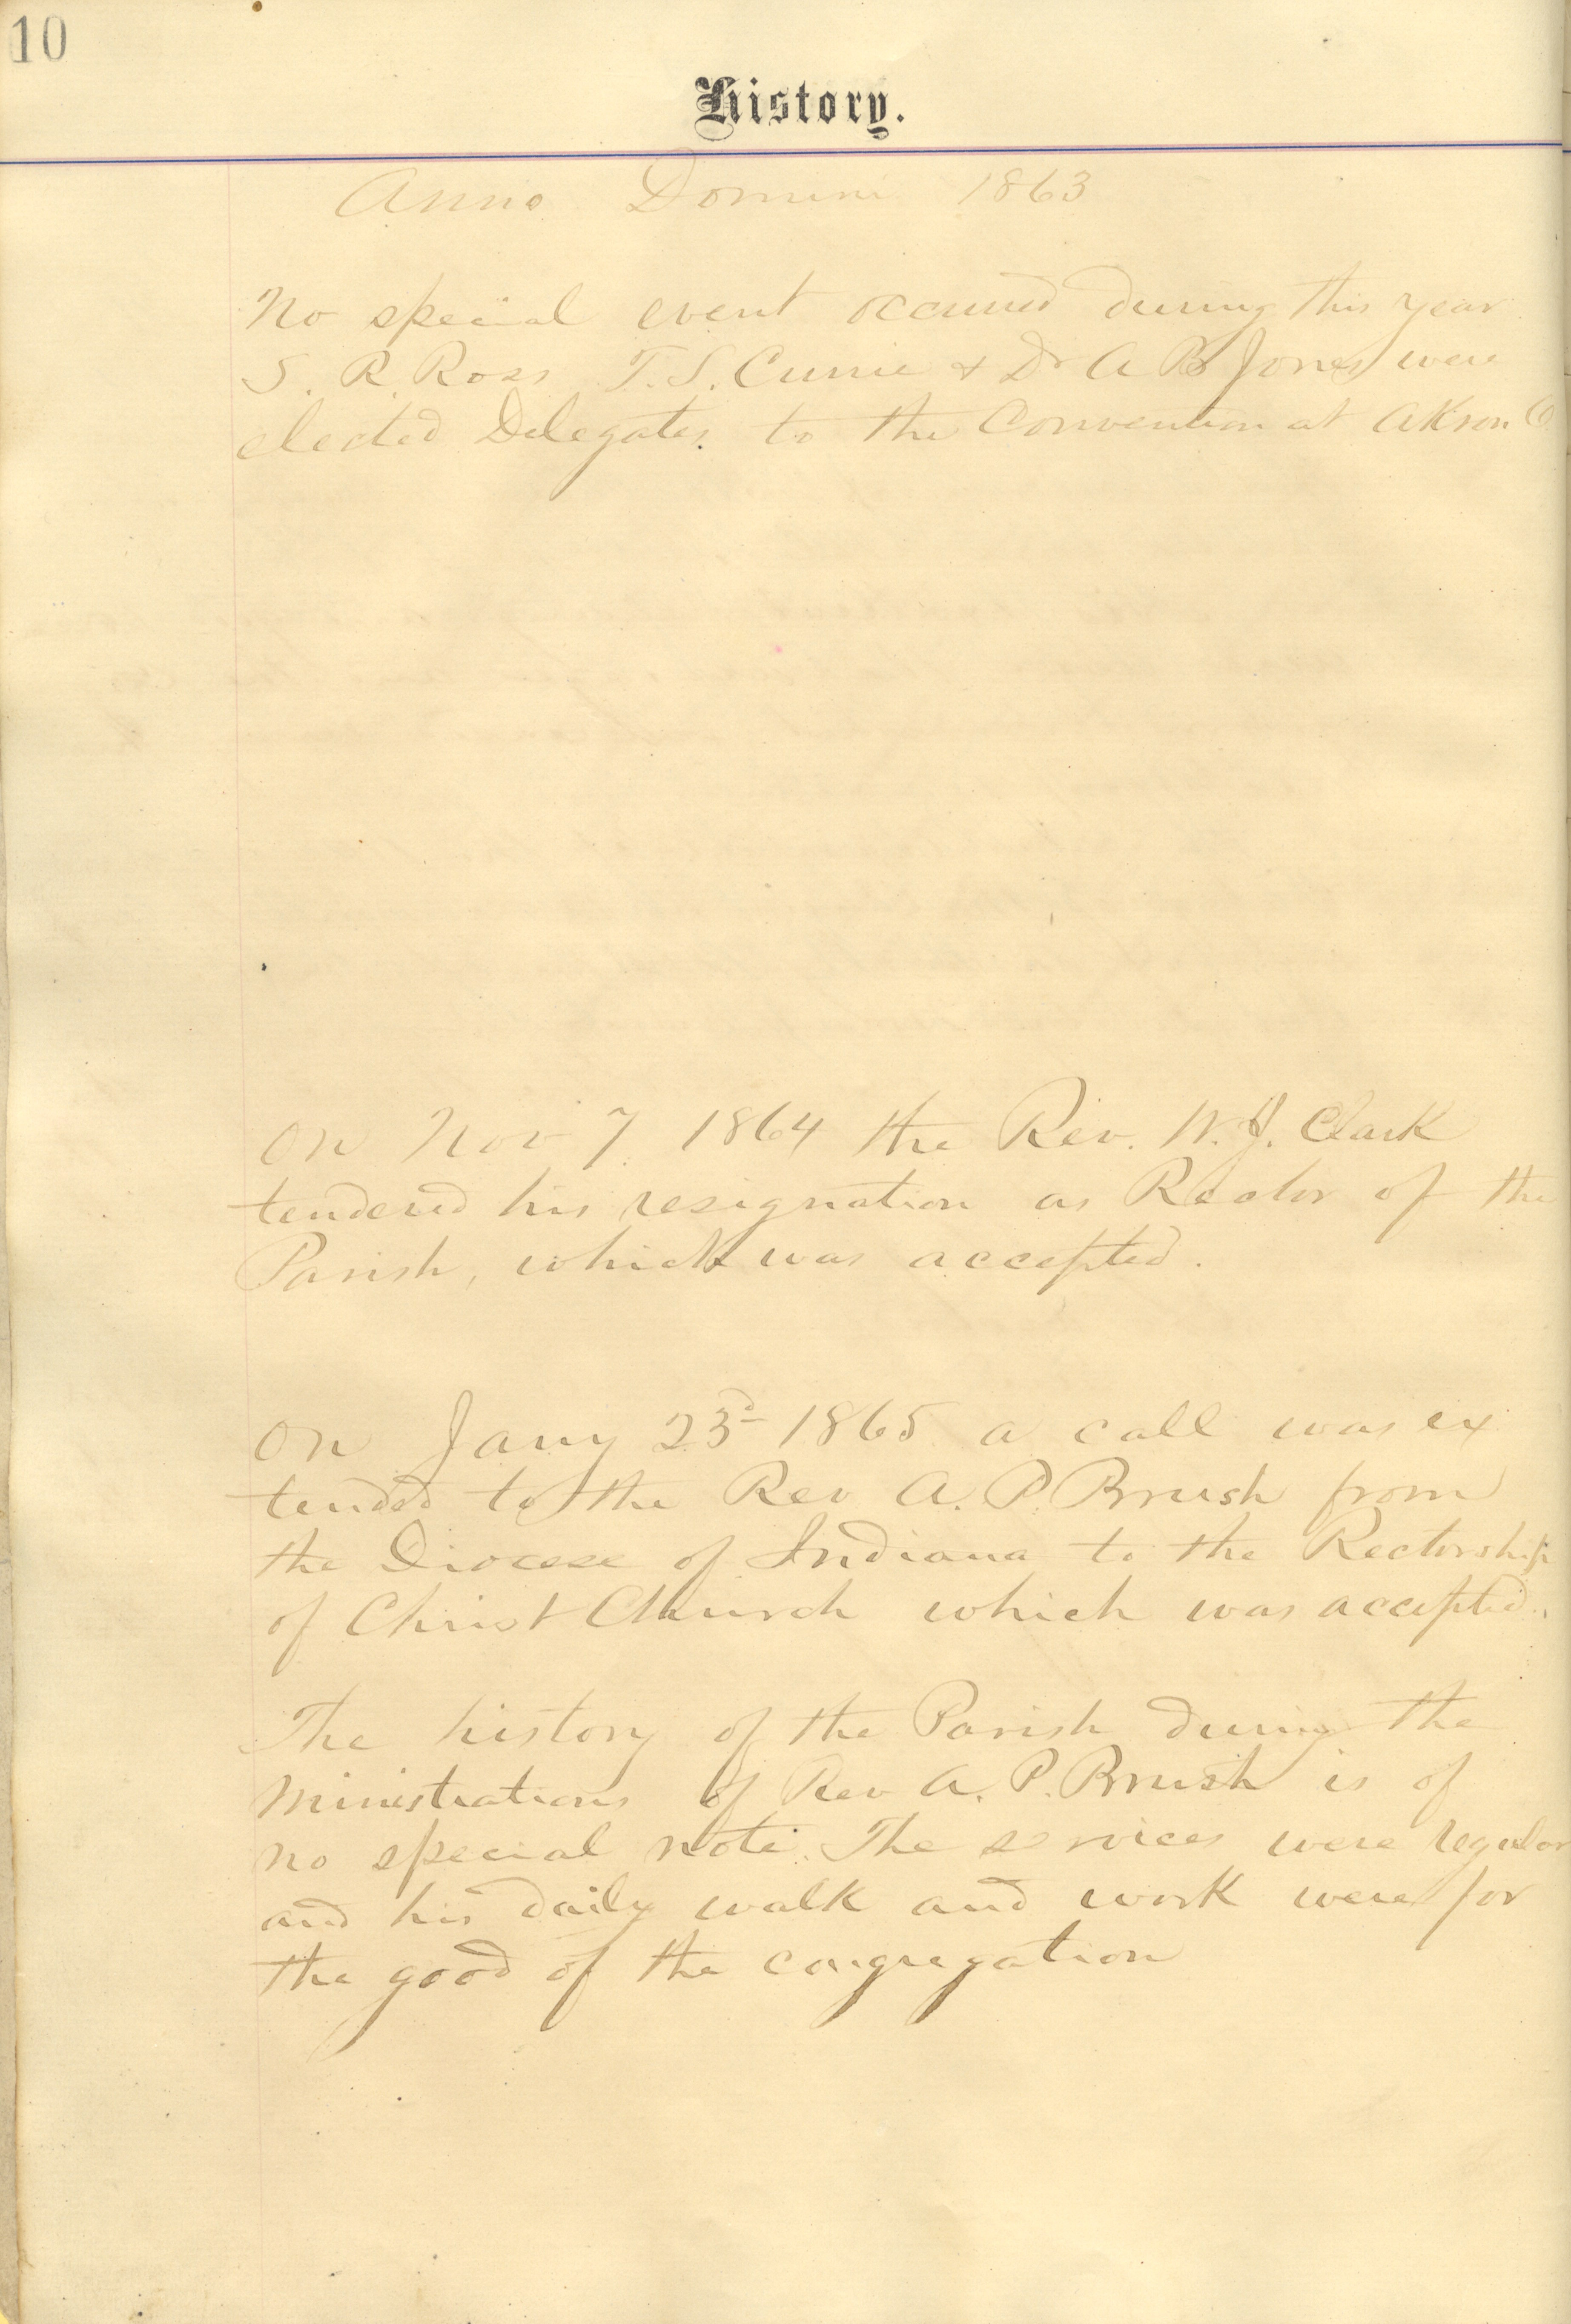 10
History.
Anno Domini 1863
No special event occurred during this year
S. R. Ross T. S. Currie & Dr A B Jones were
elected Delegates to the Convention at Akron O
On Nov 7 1864 the Rev. W. J. Clark
tendered his resignation as Rector of the
Parish, which was accepted.
On Jany 23d 1865 a call was ex
tended to the Rev A. P. Brush from
the Diocese of Indiana to the Rectorship
of Christ Church which was accepted.
The history of the Parish during the
Ministrations of Rev A. P. Brush is of
no special note. The services were regular
and his daily walk and work were for
the good of the congregation